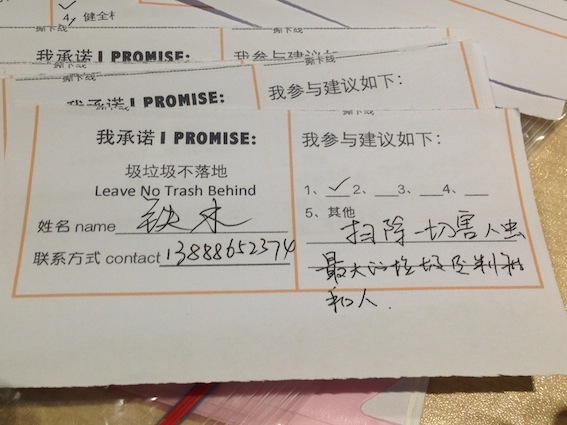 4, 健全
我承诺 I PROMISE:
我参与建议如下:
撕下线
我承诺 I PROMISE:
我参与建议如下:
撕下线
我承诺 I PROMISE:
圾垃圾不落地
Leave No Trash Behind
姓名 name 铁木
联系方式 contact 13888652374
我参与建议如下:
1、✓2、 3、 4、
5、其他
扫除一切害人虫
最大的垃圾是制
和人.